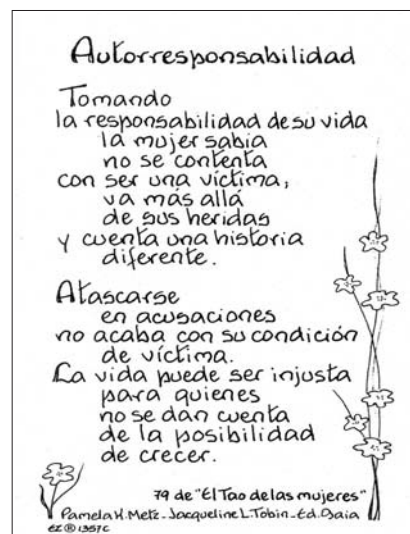 Autorresponsabilidad
Tomando
la responsabilidad de su vida
la mujer sabia
no se contenta
con ser una víctima;
va más allá
de sus heridas
y cuenta una historia
diferente.
Atascarse
en acusaciones
no acaba con su condición
de víctima.
La vida puede ser injusta
para quienes
no se dan cuenta
de la posibilidad
de crecer.
79 de "El Tao de las mujeres"
Pamela K. Metz - Jacqueline L. Tobin - Ed. Gaia